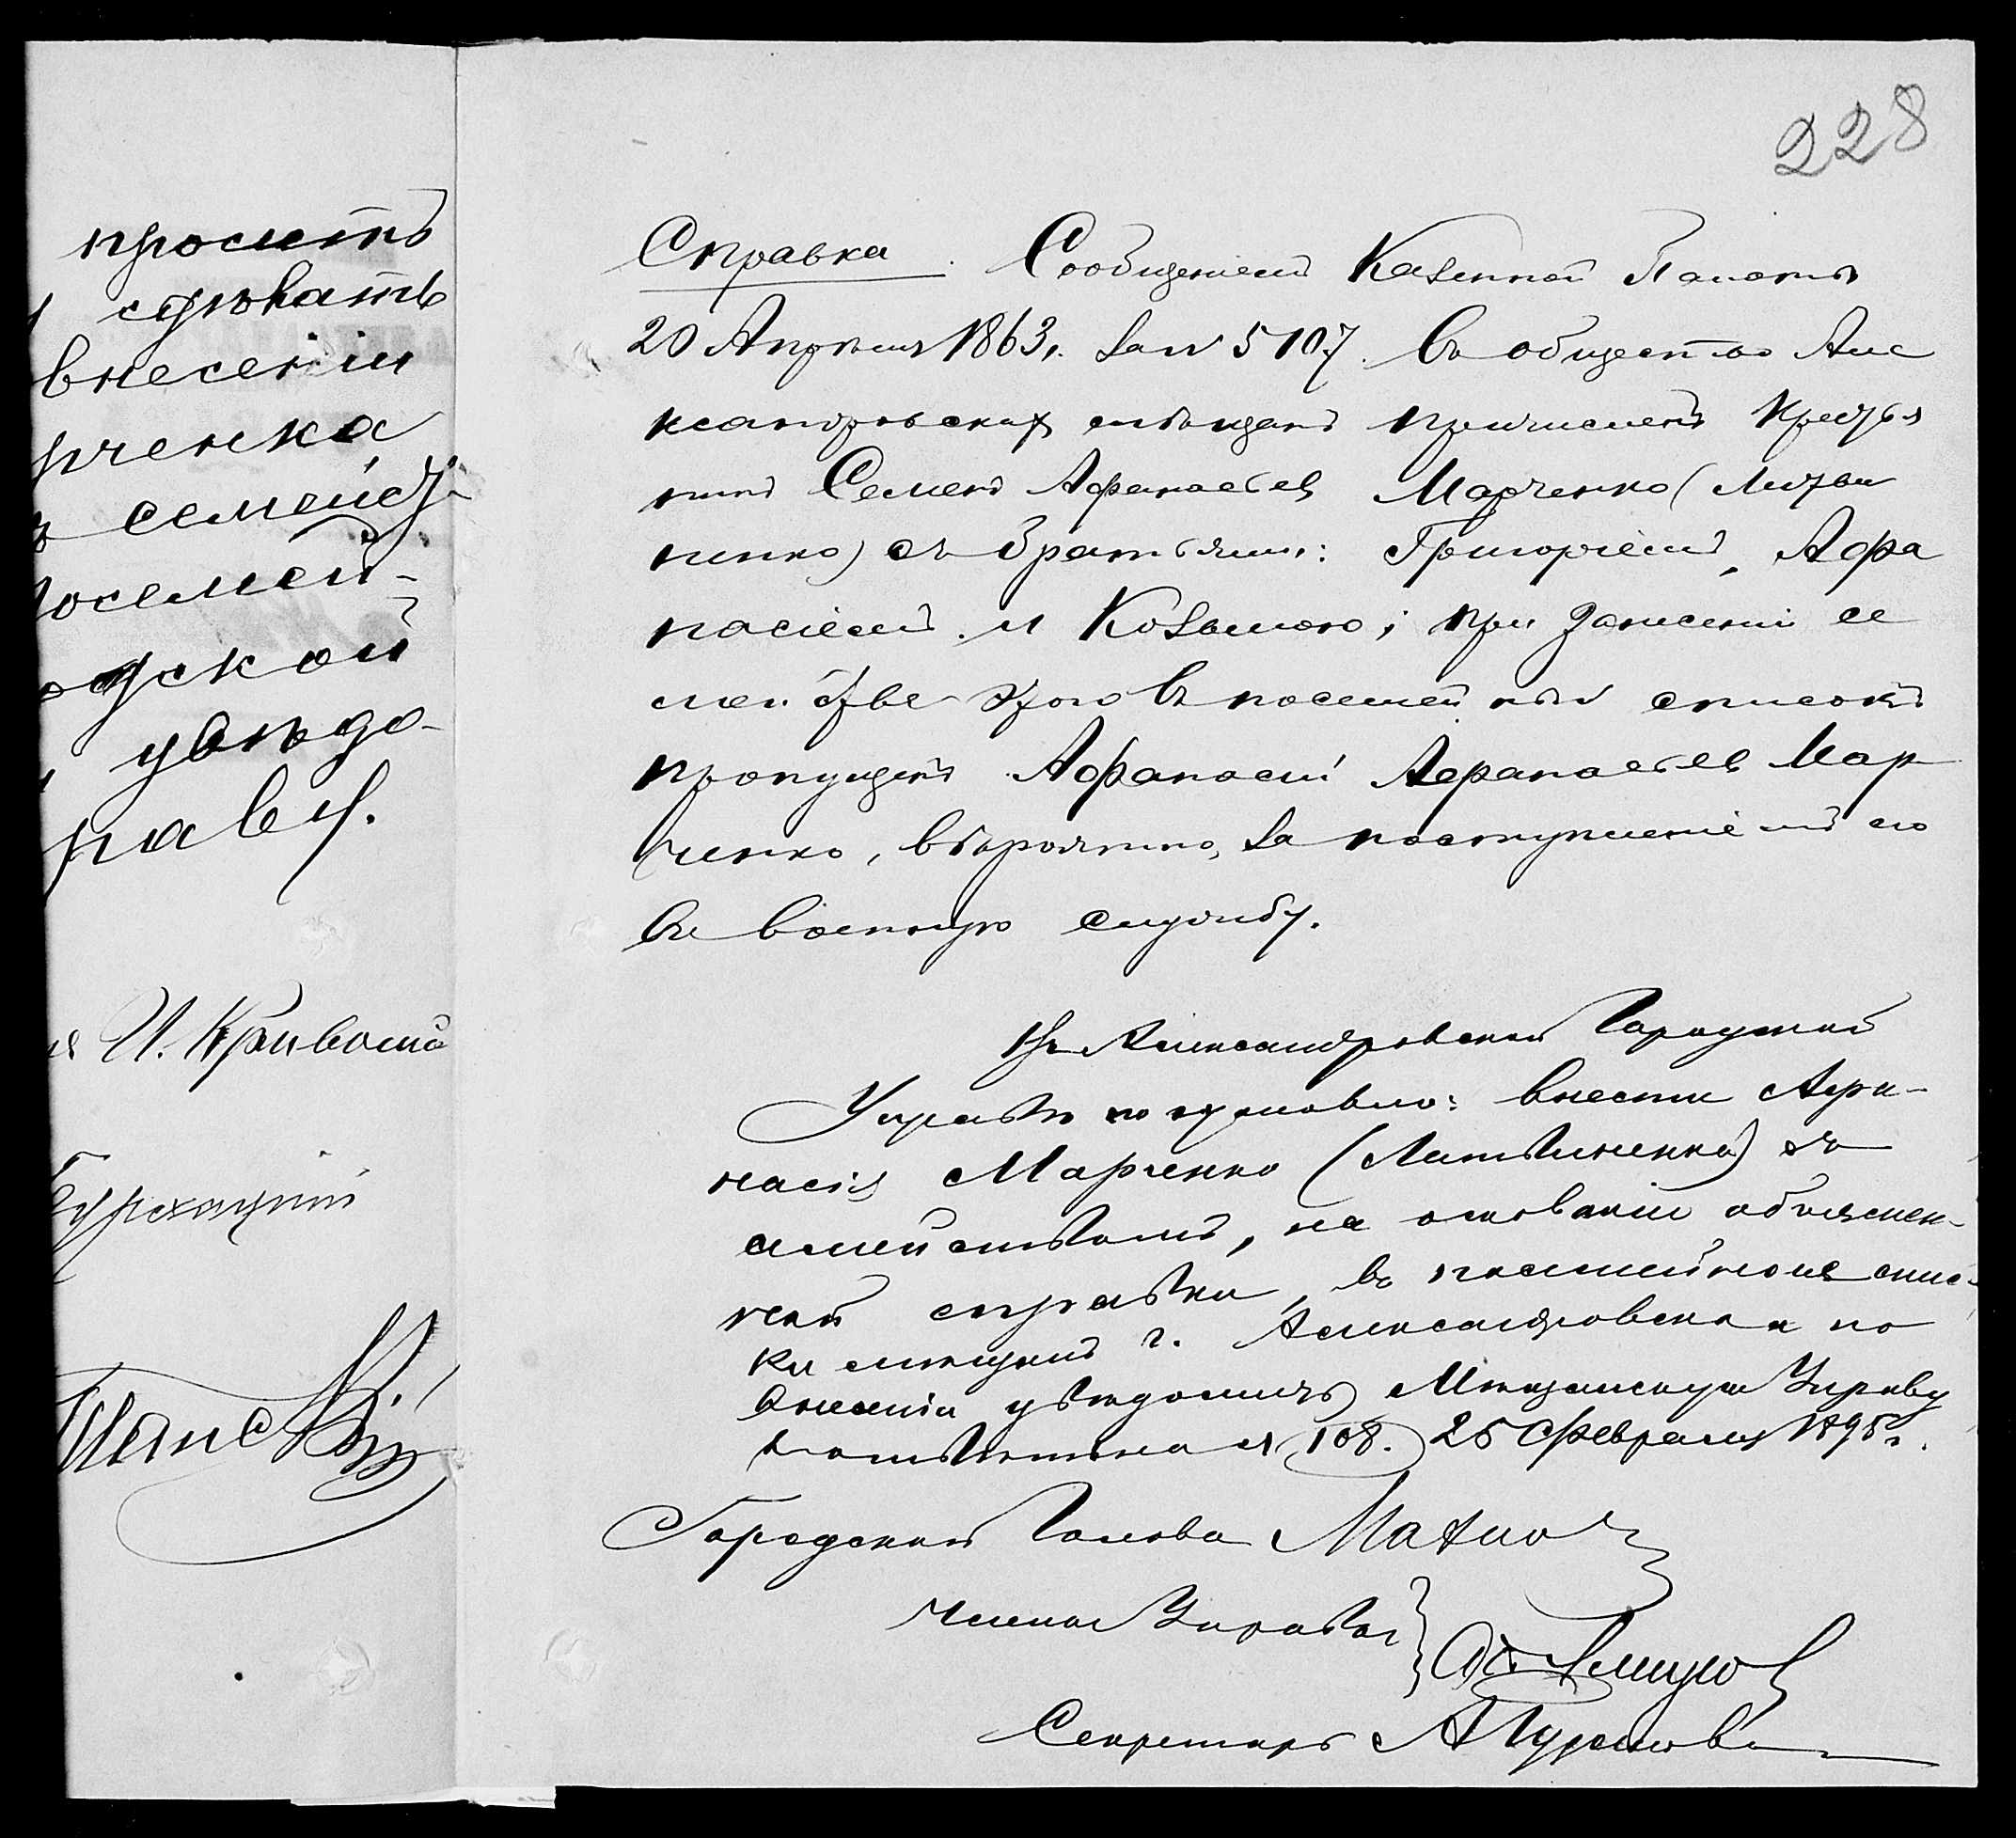 228
проситъ
сдѣлать
внесеніи
рченка
семейст
посемей-
одской
увѣдо-
раву.
И. Кривошо
Справка. Сообщеніемъ Казенной Палаты
20 Апрѣля 1863 г. за № 5107. въ общество Але
ксандровскихъ мѣщанъ причисленъ крестья
нинъ Семенъ Афанасьевъ Марченко (Литви
ненко) съ братьями: Григоріемъ, Афа
насіемъ и Козьмою; при занесеніи се
мейства этого въ посемейный списокъ
пропущенъ Афанасій Афанасьевъ Мар
ченко, вѣроятно, за поступленіемъ его
въ военную службу.
Въ Александровской Городской
Управѣ постановлено: внести Афа-
насія Марченко (Литвиненка) съ
семействомъ, на основаніи объяснен-
ной справки, въ посемейные спис-
ки мѣщанъ г. Александровска и по
внесеніи увѣдомить Мѣщанскую Управу
108. 25 Февраля 1895 г.
Городской Голова
Члены Управы
Секретарь